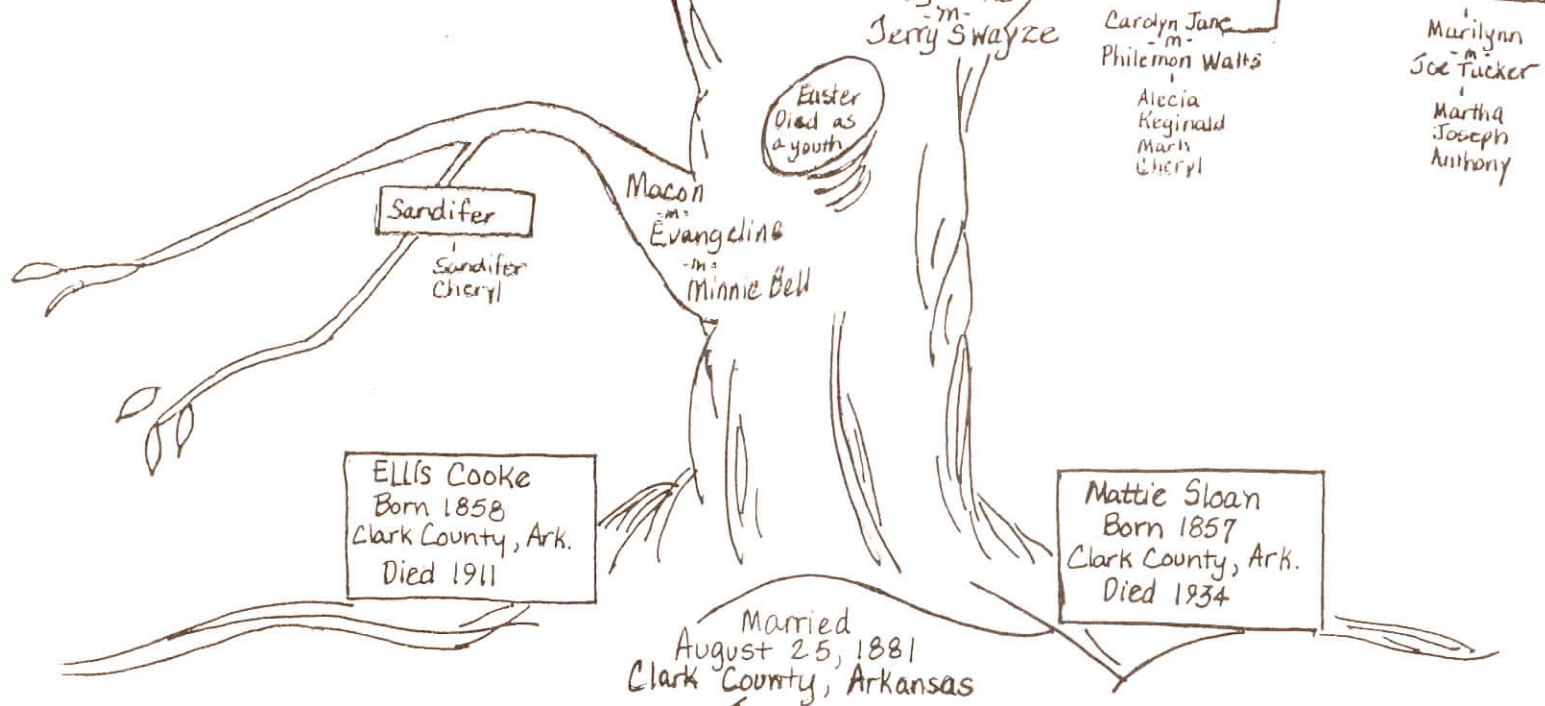 -m-
Jerry Swayze
Carolyn Jane
-m-
Philemon Walts
Alecia
Reginald
Mark
Cheryl
Marilynn
-m-
Joe Tucker
Martha
Joseph
Anthony
Easter
Died as
a youth
Macon
-m-
Evangeline
-m-
Minnie Bell
Sandifer
Sandifer
Cheryl
Ellis Cooke
Born 1858
Clark County, Ark.
Died 1911
Mattie Sloan
Born 1857
Clark County, Ark.
Died 1934
Married
August 25, 1881
Clark County, Arkansas